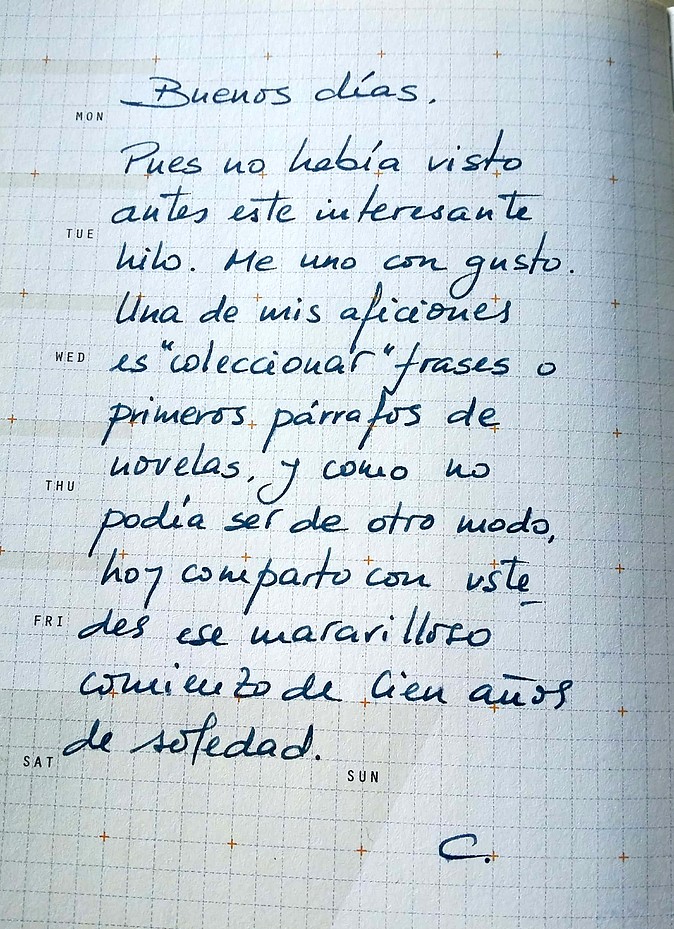 Buenos días.
MON
Pues no había visto
antes este interesante
TUE
hilo. Me uno con gusto.
Una de mis aficiones
WED
es "coleccionar" frases o
primeros párrafos de
novelas, y como no
THU
podía ser de otro modo,
hoy comparto con uste
FRI
des ese maravilloso
comienzo de Cien años
de soledad.
SAT
SUN
C.